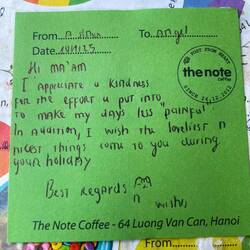 From To
Date
Hi Ma'am
I appreciate u kindness
for the effort u put into
to make my days less "painful".
In addition, I wish the loveliest n
nicest things come to you during
your holiday
Best regards
the note
coffee
The Note Coffee - 64 Luong Van Can, Hanoi
From